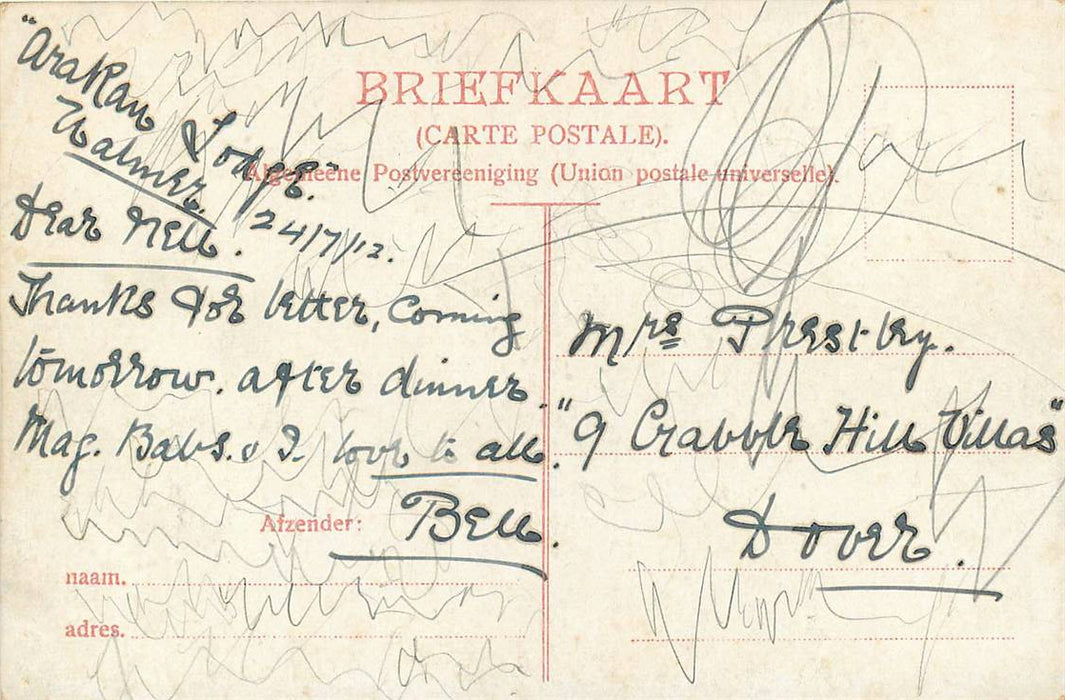 BRIEFKAART
(CARTE POSTALE).
Algemeene Postvereeniging (Union postale universelle).
"Arakan Lodge".
Walmer.
24/7/12.
Dear Nell.
Thanks for letter, coming
tomorrow. after dinner.
Mag. Babs. & I. love to all.
Bell.
Afzender:
naam.
adres.
Mrs Prestley.
"9 Crabble Hill Villas"
Dover.